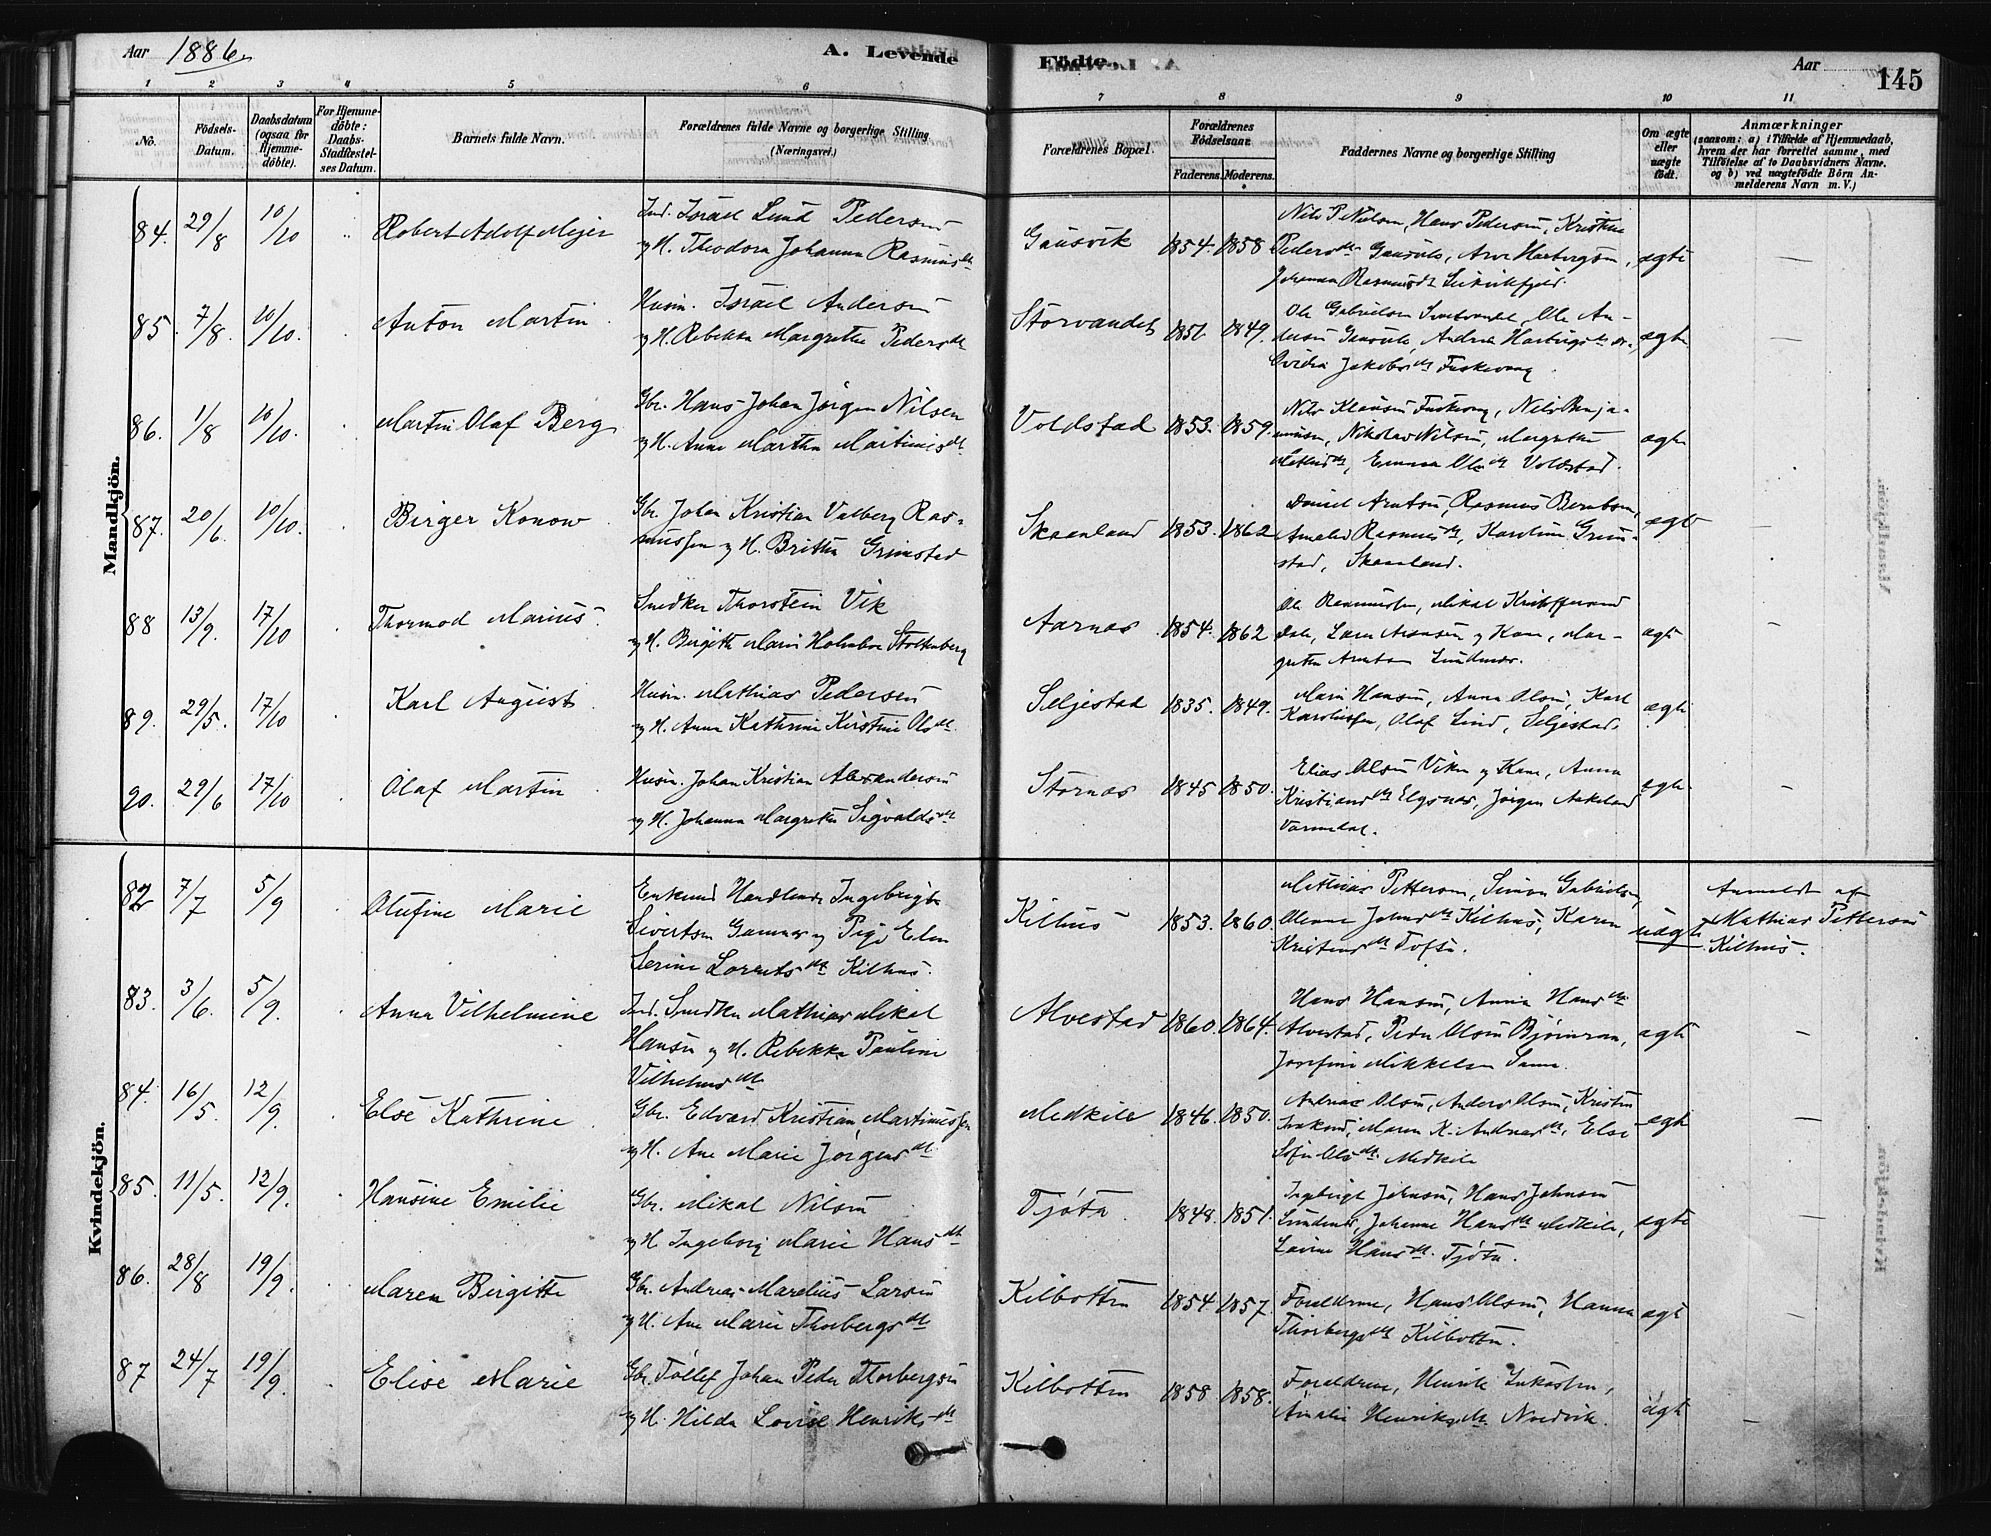 Aar 1886. A. Levende Födte. Aar 145
1 2 3 4 5 6 7 8 9 10 11
No.
Födsels-
Datum.
Daabsdatum
(ogsaa for
Hjemme-
döbte).
For Hjemme-
döbte:
Daabs-
Stadfæstel-
ses Datum.
Barnets fulde Navn.
Forældrenes fulde Navne og borgerlige Stilling
(Næringsvei.)
Forældrenes Bopæl.
Forældrenes
Födselsaar.
Faderens. Moderens.
Faddernes Navne og borgerlige Stilling
Om ægte
eller
uægte
födt.
Anmærkninger
(saasom: a) i Tilfælde af Hjemmedaab,
hvem der har forrettet samme, med
Tilföielse af to Daabsvidners Navne.
og b) ved uægtefödte Börn An-
melderens Navn m. V.)
Mandkjön.
84. 29/8 10/10 Robert Adolf Mejer
Ind. Israel Lund Pedersen
og H. Theodora Johanna Rasmusdt
Gausvik 1854. 1858
Nils P Nielsen, Hans Pedersen, Kristine
Pedersdt Gausvik, Arve Hartvigsen,
Johanna Rasmusdt
ægte —
85. 7/8. 10/10. Anton Martin
Husm. Israel Andersen
og H. Rebekka Margrethe Pedersdt
Storvandet 1851 1849.
Ole Gabrielsen Storvandet, Ole An-
dersen Gausvik, Andrea Hartvigsdt
Jakobsdt Fuskevaag
ægte —
86. 1/8 10/10. Martin Olaf Berg
Gbr. Hans Johan Jörgen Nilsen
og H. Anne Martha Martinusdt
Voldstad 1853. 1859.
Nils Klausen Fuskevaag, Nils Benja-
minsen, Nikolai Nilsen, Margrethe
Emma Olsdt Voldstad.
ægte
87. 20/6. 10/10. Birger Konow
Gbr. Johan Kristian Valberg Ras-
mussen og H. Britha Grimstad
Skaanland 1853. 1862
Daniel Arntsen, Rasmus Berntsen,
Amalie Rasmusdt, Karoline Grim-
stad, Skaanland.
ægte —
88 13/9. 17/10 Thormod Marius
Snedker Thorstein Vik
og H. Birgitte Marie Holmboe Stoltenberg
Aarnes 1854. 1862
Ole Rasmussen, Mikal Kristoffersen
Dale, Lars Aronsen og Kone, Mar-
grethe Arntsen Lundenes.
ægte —
89. 29/5. 17/10 Karl August
Husm. Mathias Pedersen
og H. Anna Kathrine Kirstine Olsdt
Seljestad 1835. 1849.
Marie Hansen, Anna Olsen, Karl
Karoliussen, Olaf Lind, Seljestad.
ægte
90. 29/6 17/10 Olaf Martin
Husm. Johan Kristian Alexandersen
og H. Johanna Margrethe Sigvaldsdt
Stornes 1845 1850.
Elias Olsen Viken og Kone, Anna
Kristiansdt Elgsnes, Jörgen Aakeland
Varmedal.
ægte —
Kvindekjön.
82 7/7 5/9 Olufine Marie
Enkemd Handlende Ingebrigt
Sivertsen Gamnes og Pige Elen
Serine Lorentsdt Kilhus.
Kilhus 1853. 1860.
Mathias Pettersen, Simon Gabrielsen,
Johnsdt Kilhus, Karen
Kristensdt Toften.
uægte
Anmeldt af
Mathias Pettersen
Kilhus.
83. 3/6. 5/9. Anna Vilhelmine
Ind. Snedker Mathias Mikal
Hansen og H. Rebekka Pauline
Vilhelmsdt
Alvestad 1860. 1864.
Hans Hansen, Anna Hansdt
Alvestad, Peder Olsen Björnraa,
Josefine Mikkelsen Same.
ægte —
84. 16/5 12/9. Else Kathrine
Gbr. Edvard Kristian Martinussen
og H. Ane Marie Jörgensdt
Medkile 1846. 1850.
Andreas Olsen, Anders Olsen, Kristen
Maren K. Andreasdt, Else
Sofie Olsdt Medkile
ægte —
85. 11/5. 12/9. Hansine Emilie
Gbr. Mikal Nilsen
og H Ingeborg Marie Hansdt
Tjöta 1848. 1851.
Ingebrigt Johnsen, Hans Johnsen
Lundenes, Johanne Hansdt Medkile,
Lovine Hansdt. Tjöta.
ægte —
86. 28/8 19/9. Maren Birgitte
Gbr. Andreas Marelius Larsen
og H. Ane Marie Thorbergsdt
Kilbotten 1854. 1857.
Foreldrene, Hans Olsen, Hanna
Thorbergsdt Kilbotten.
ægte —
87 24/7 19/9. Elise Marie
Gbr. Tollef Johan Peder Thorbergsen
og H. Hilda Lovise Henriksdt
Kilbotten 1858 1858.
Foreldrene, Henrik Lukassen,
Amalie Henriksdt Nordvik.
ægte —